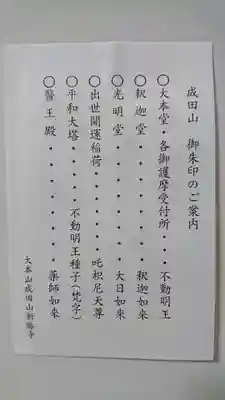 成田山 御朱印のご案内
◯大本堂・各御護摩受付所・・・不動明王
◯釈迦堂・・・・・・・・・釈迦如来
◯光明堂・・・・・・・・・大日如来
◯出世開運稲荷・・・・・・吒枳尼天尊
◯平和大塔・・・・不動明王種子(梵字)
◯醫王殿・・・・・・・・・薬師如来
大本山成田山新勝寺